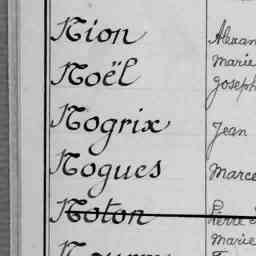 Nion Alexan
Marie
Noël Joseph
Nogrix Jean
Nogues Marce
Noton Pierre
Marie